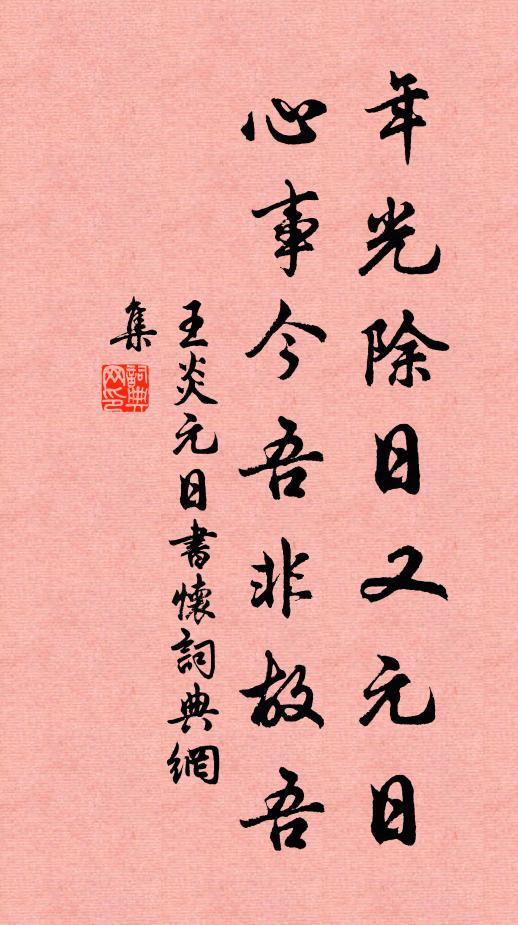 年光除日又元日
心事今吾非故吾
王炎元日書懷詞典網
集
詞典
网印